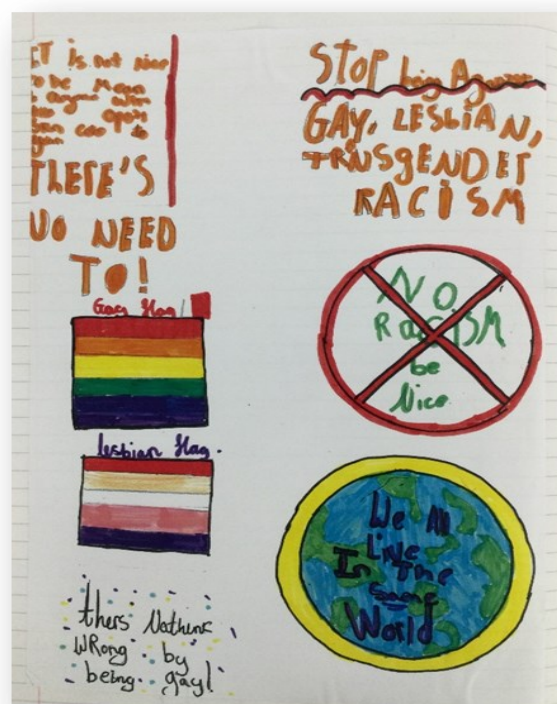 IT is not nice
to be mean
THERE'S
NO NEED
TO!
Gay flag
lesbian flag.
thers Nothing
WRong by
being gay!
STOP being
GAY, LESBIAN,
TRNSGENDER
RACISM
NO
RACISM
be
Nice
We All
Live
In The
Same
World